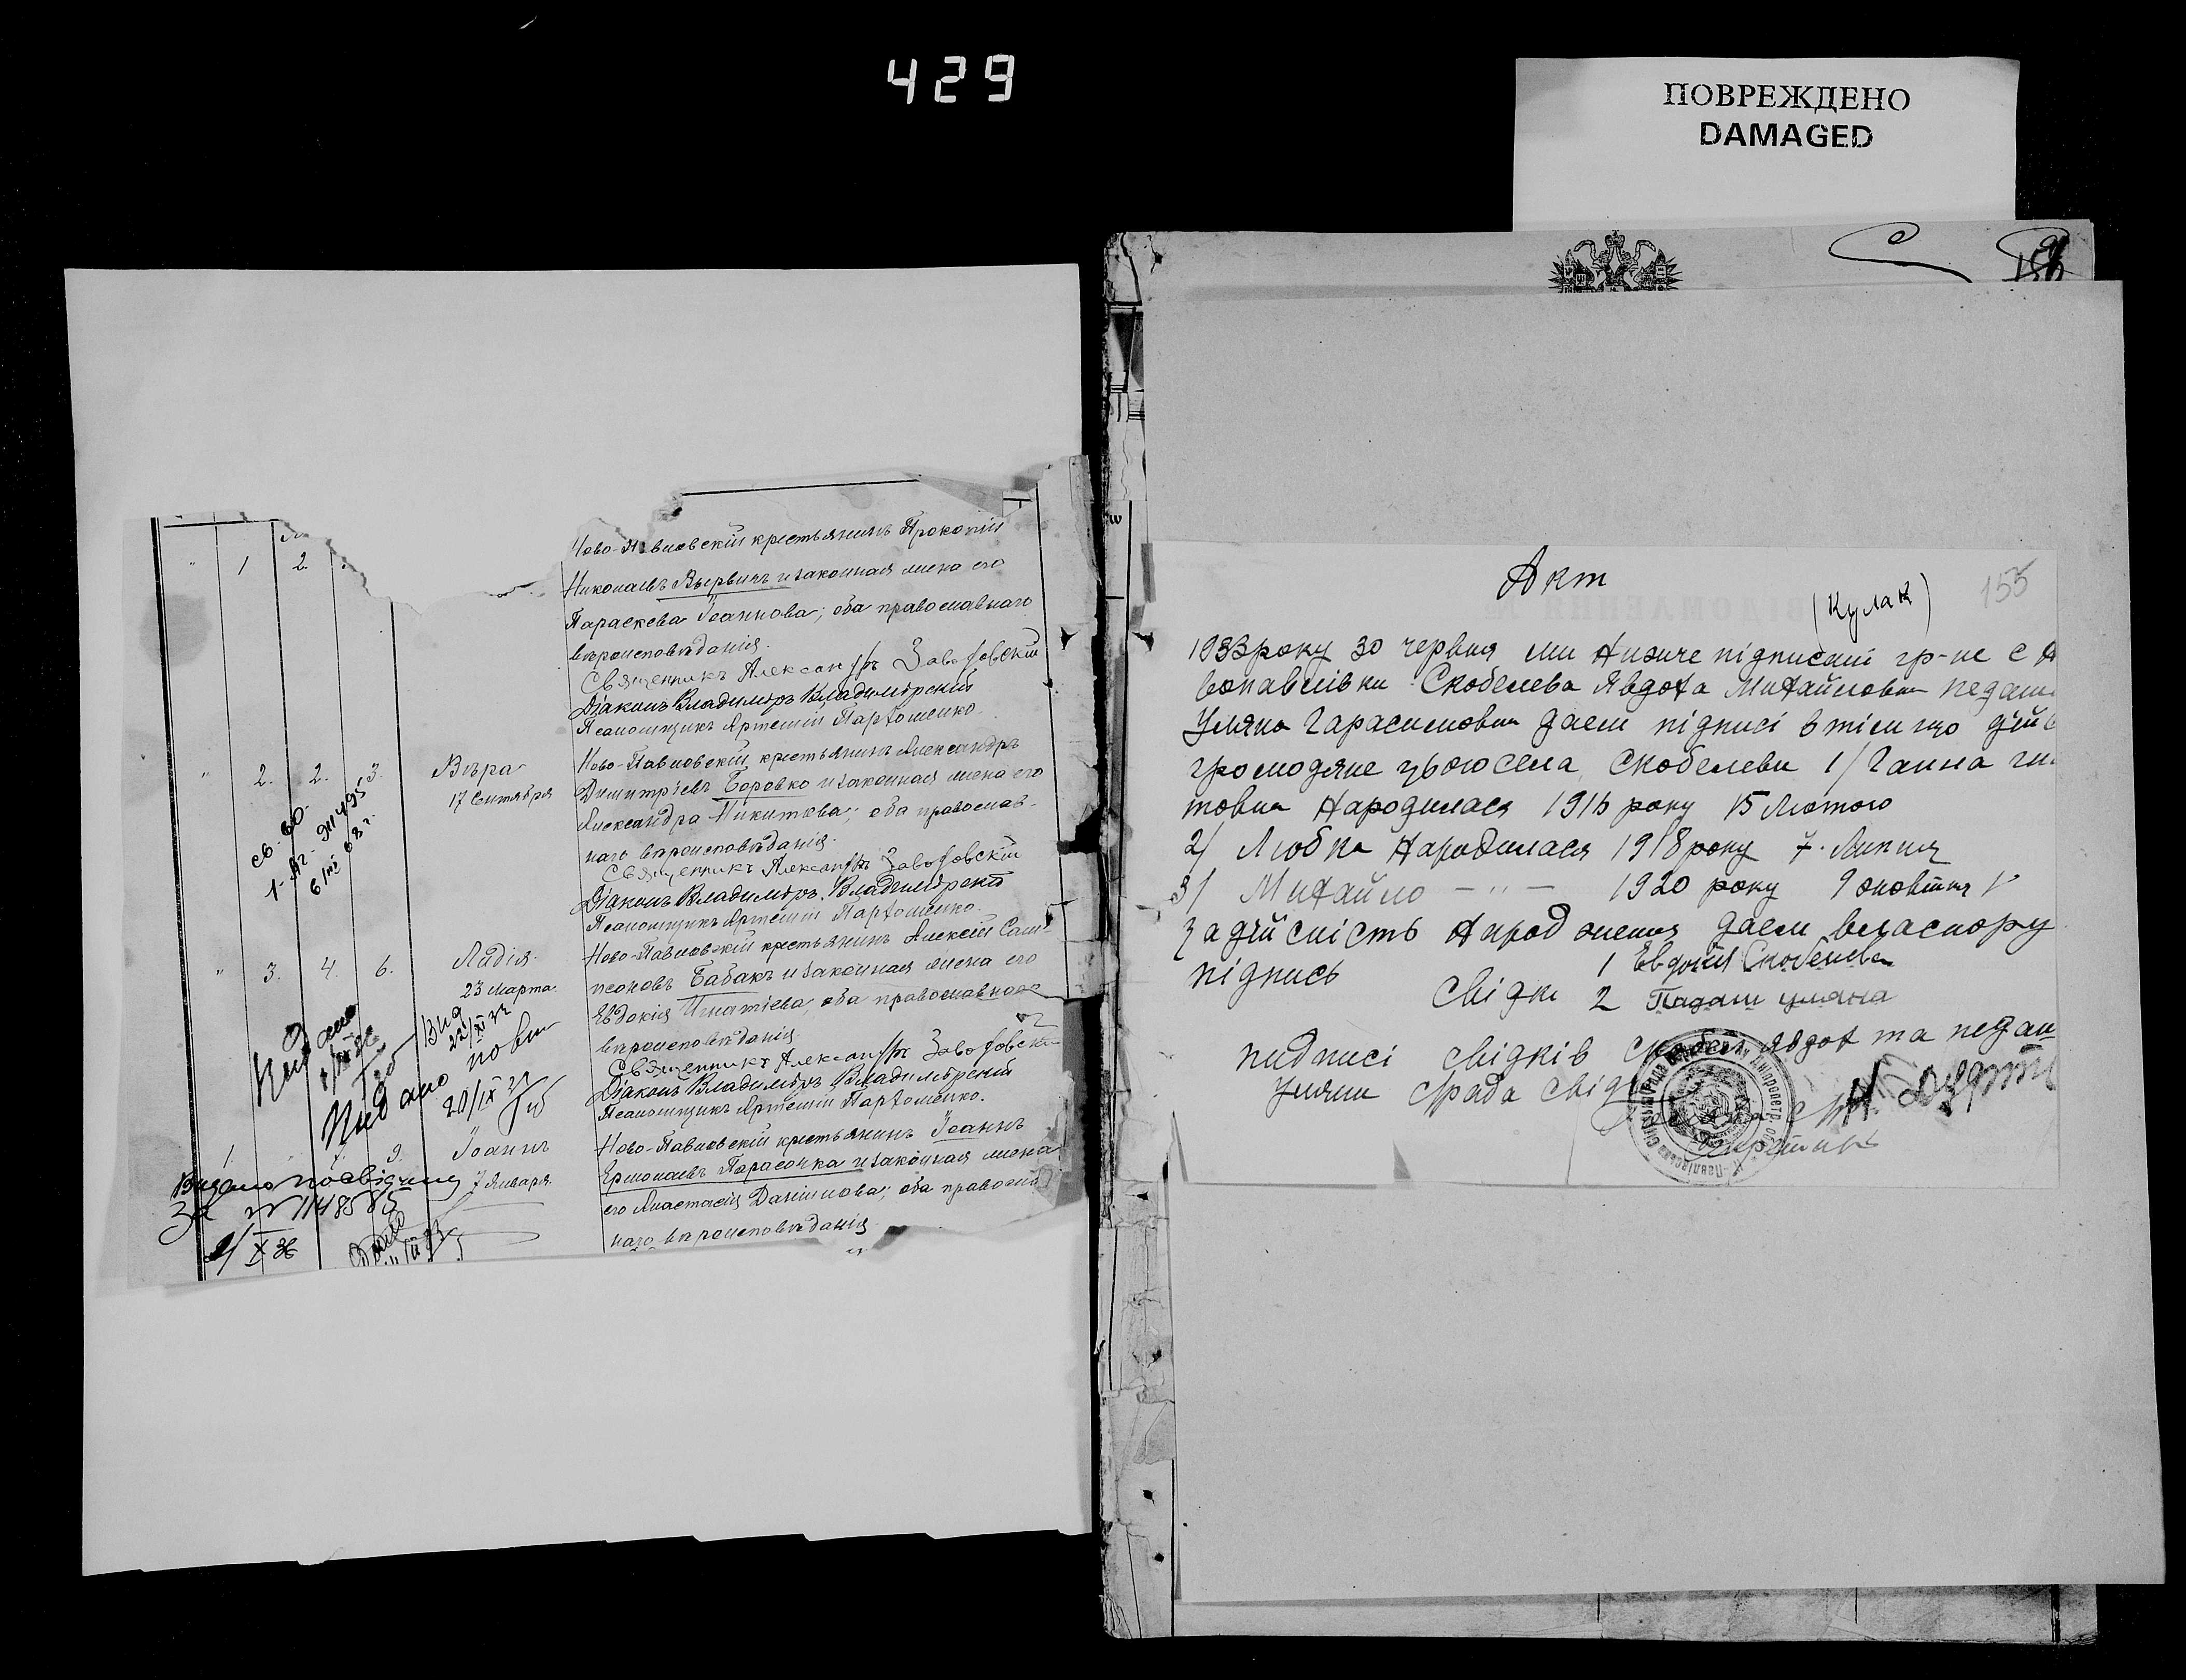 429
ПОВРЕЖДЕНО
DAMAGED
" 1 2.
Ново-Павловскій крестьянинъ Прокопій
Николаевъ Вырвичъ и законная жена его
Параскева Іоаннова; оба православнаго
вѣроисповѣданія.
Священникъ Александръ Заводовскій
Діаконъ Владиміръ Владимірскій
Псаломщикъ Артемій Пархоменко.
" 2. 2. 3. Вѣра
17 Сентября
Ново-Павловскій крестьянинъ Александръ
Димитріевъ Боровко и законная жена его
Александра Никитова; оба православ-
наго вѣроисповѣданія.
Священникъ Александръ Заводовскій
Діаконъ Владиміръ Владимірскій
Псаломщикъ Артемій Пархоменко.
" 3. 4. 6. Лидія.
23 Марта
Ново-Павловскій крестьянинъ Алексій Сам-
псоновъ Бабакъ и законная жена его
Евдокія Игнатіева; оба православнаго
вѣроисповѣданія
Священникъ Александръ Заводовскій
Діаконъ Владиміръ Владимірскій
Псаломщикъ Артемій Пархоменко.
1. 9. Іоаннъ
7 Января
Ново-Павловскій крестьянинъ Іоаннъ
Ермолаевъ Парасочка и законная жена
его Анастасія Даніилова; оба православ
наго вѣроисповѣданія.
Видано посвідчину
За № 1148585
2/X 36
Акт
(Кулак)
155
1933 року 30 червня ми нижче підписані гр-не с Н
вопавлівки Скобелева Явдоха Михайловна педаш
Уляна Гарасимовна даем підписі в тім що дій
громодяне цього села Скобелеви 1/ Ганна
товна Народилася 1916 року 15 Лютого
2/ Любка Народилася 1918 року 7. Липня
3/ Михайло — " — 1920 року 9 жовтня
За дійсність народження даем власнору
підпись
Свідки
1 Евдокія Скобелева
2 Падаш уляна
пидписі свідків Явдох та педаш
Уляни срада